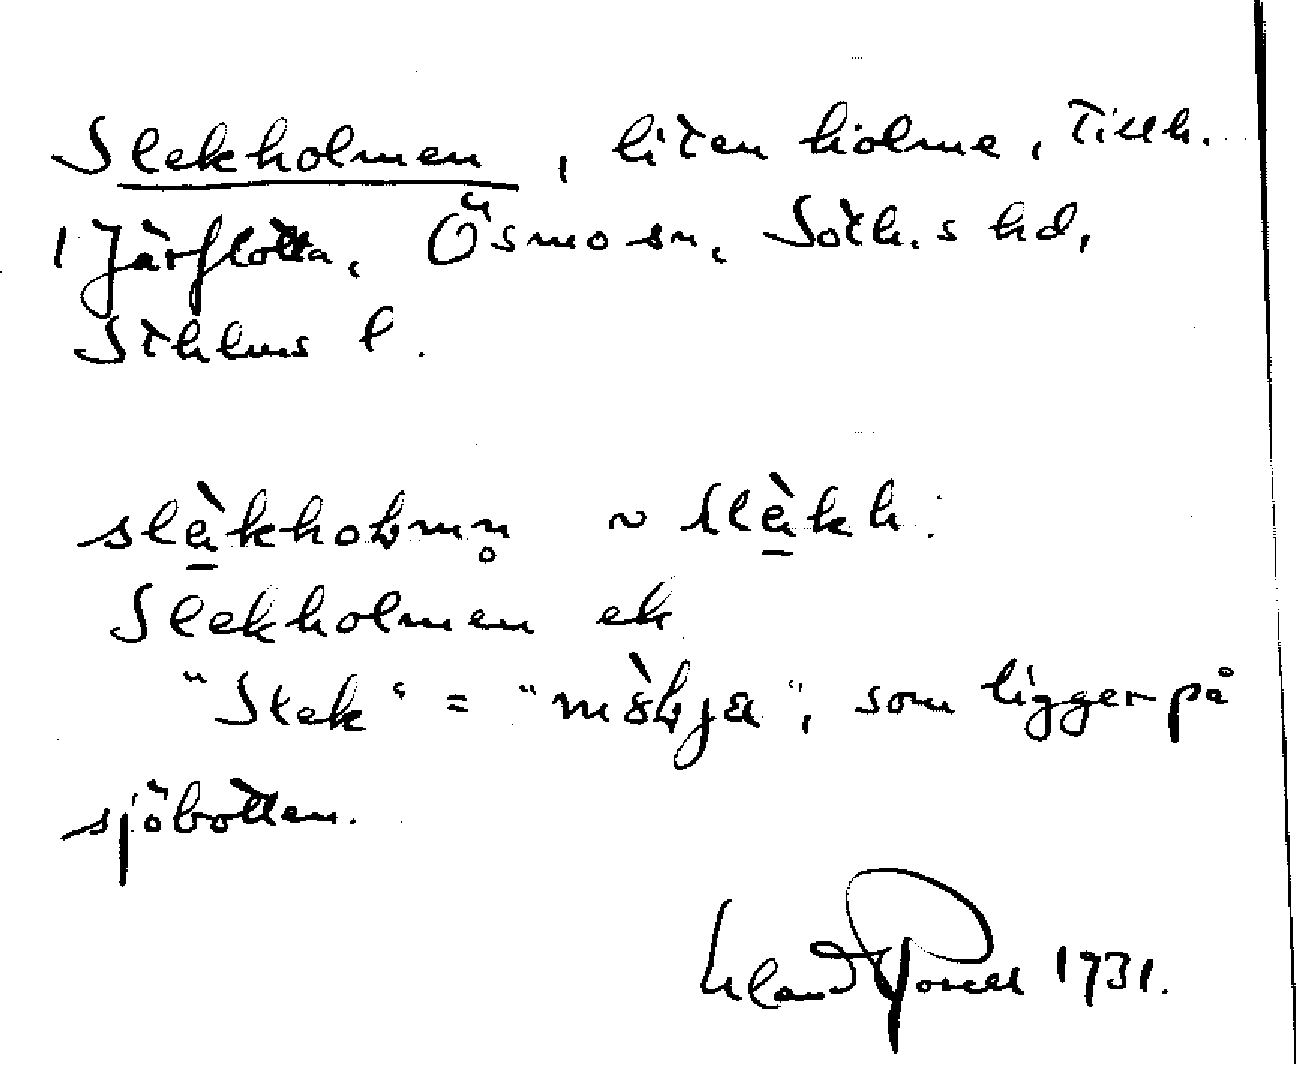 Slekholmen, liten holme, tillh.
Järflotta, Ösmo sn, Soth.s hd,
Sthlms l.
slèkholmn̥ ~ slèkh:
Slekholmen ek
"Slek" = "mòlja", som ligger på
sjöbotten.
Erland Rosell 1931.